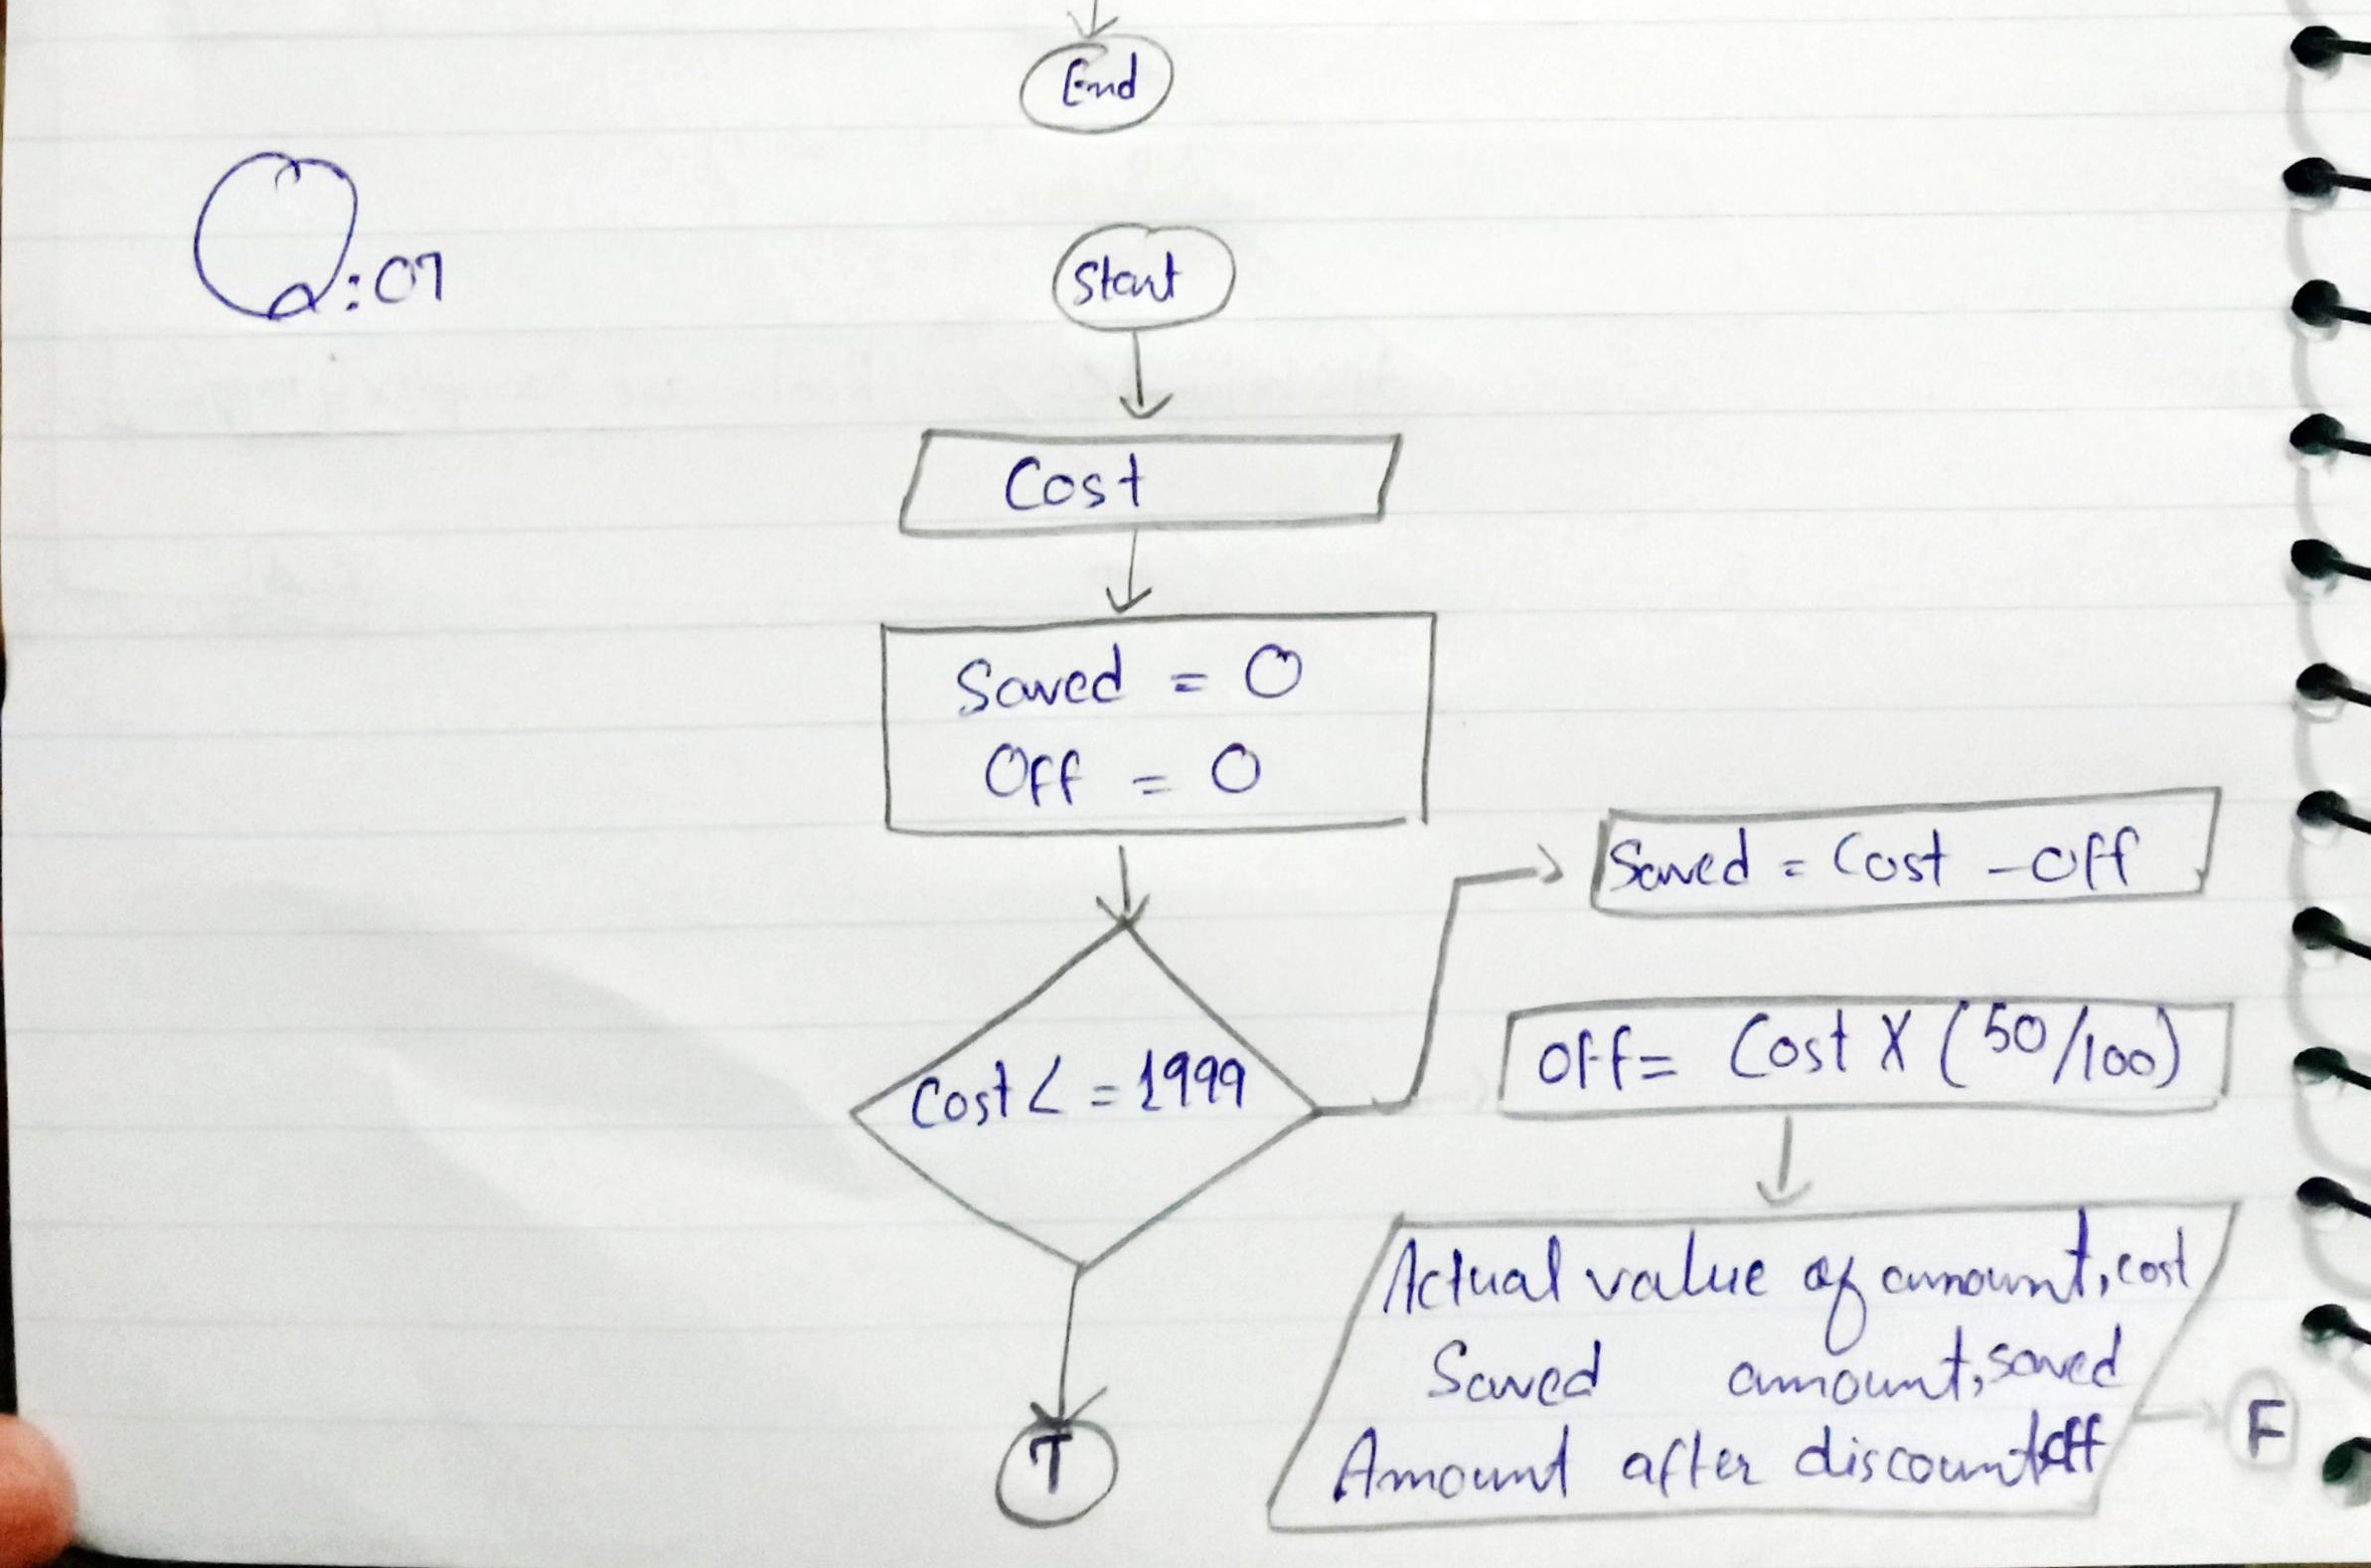 End
Q:07
Start
Cost
Saved = 0
Off = 0
Saved = Cost - Off
Cost < = 1999
Off = Cost X (50/100)
Actual value of amount, cost
Saved amount, saved
Amount after discount, off
T
F